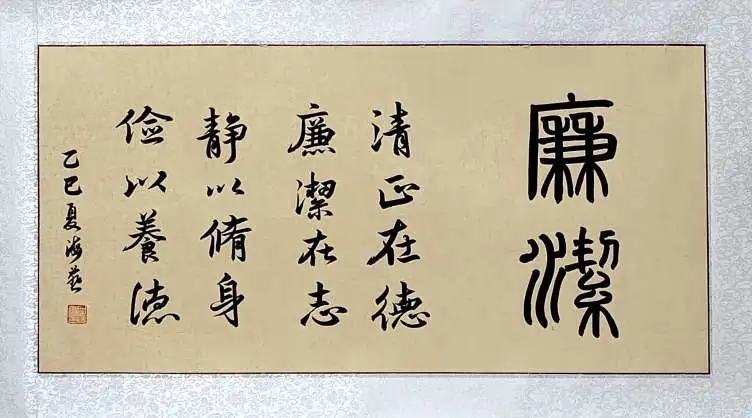 廉潔
清正在德
廉潔在志
静以脩身
儉以養德
乙巳夏海燕